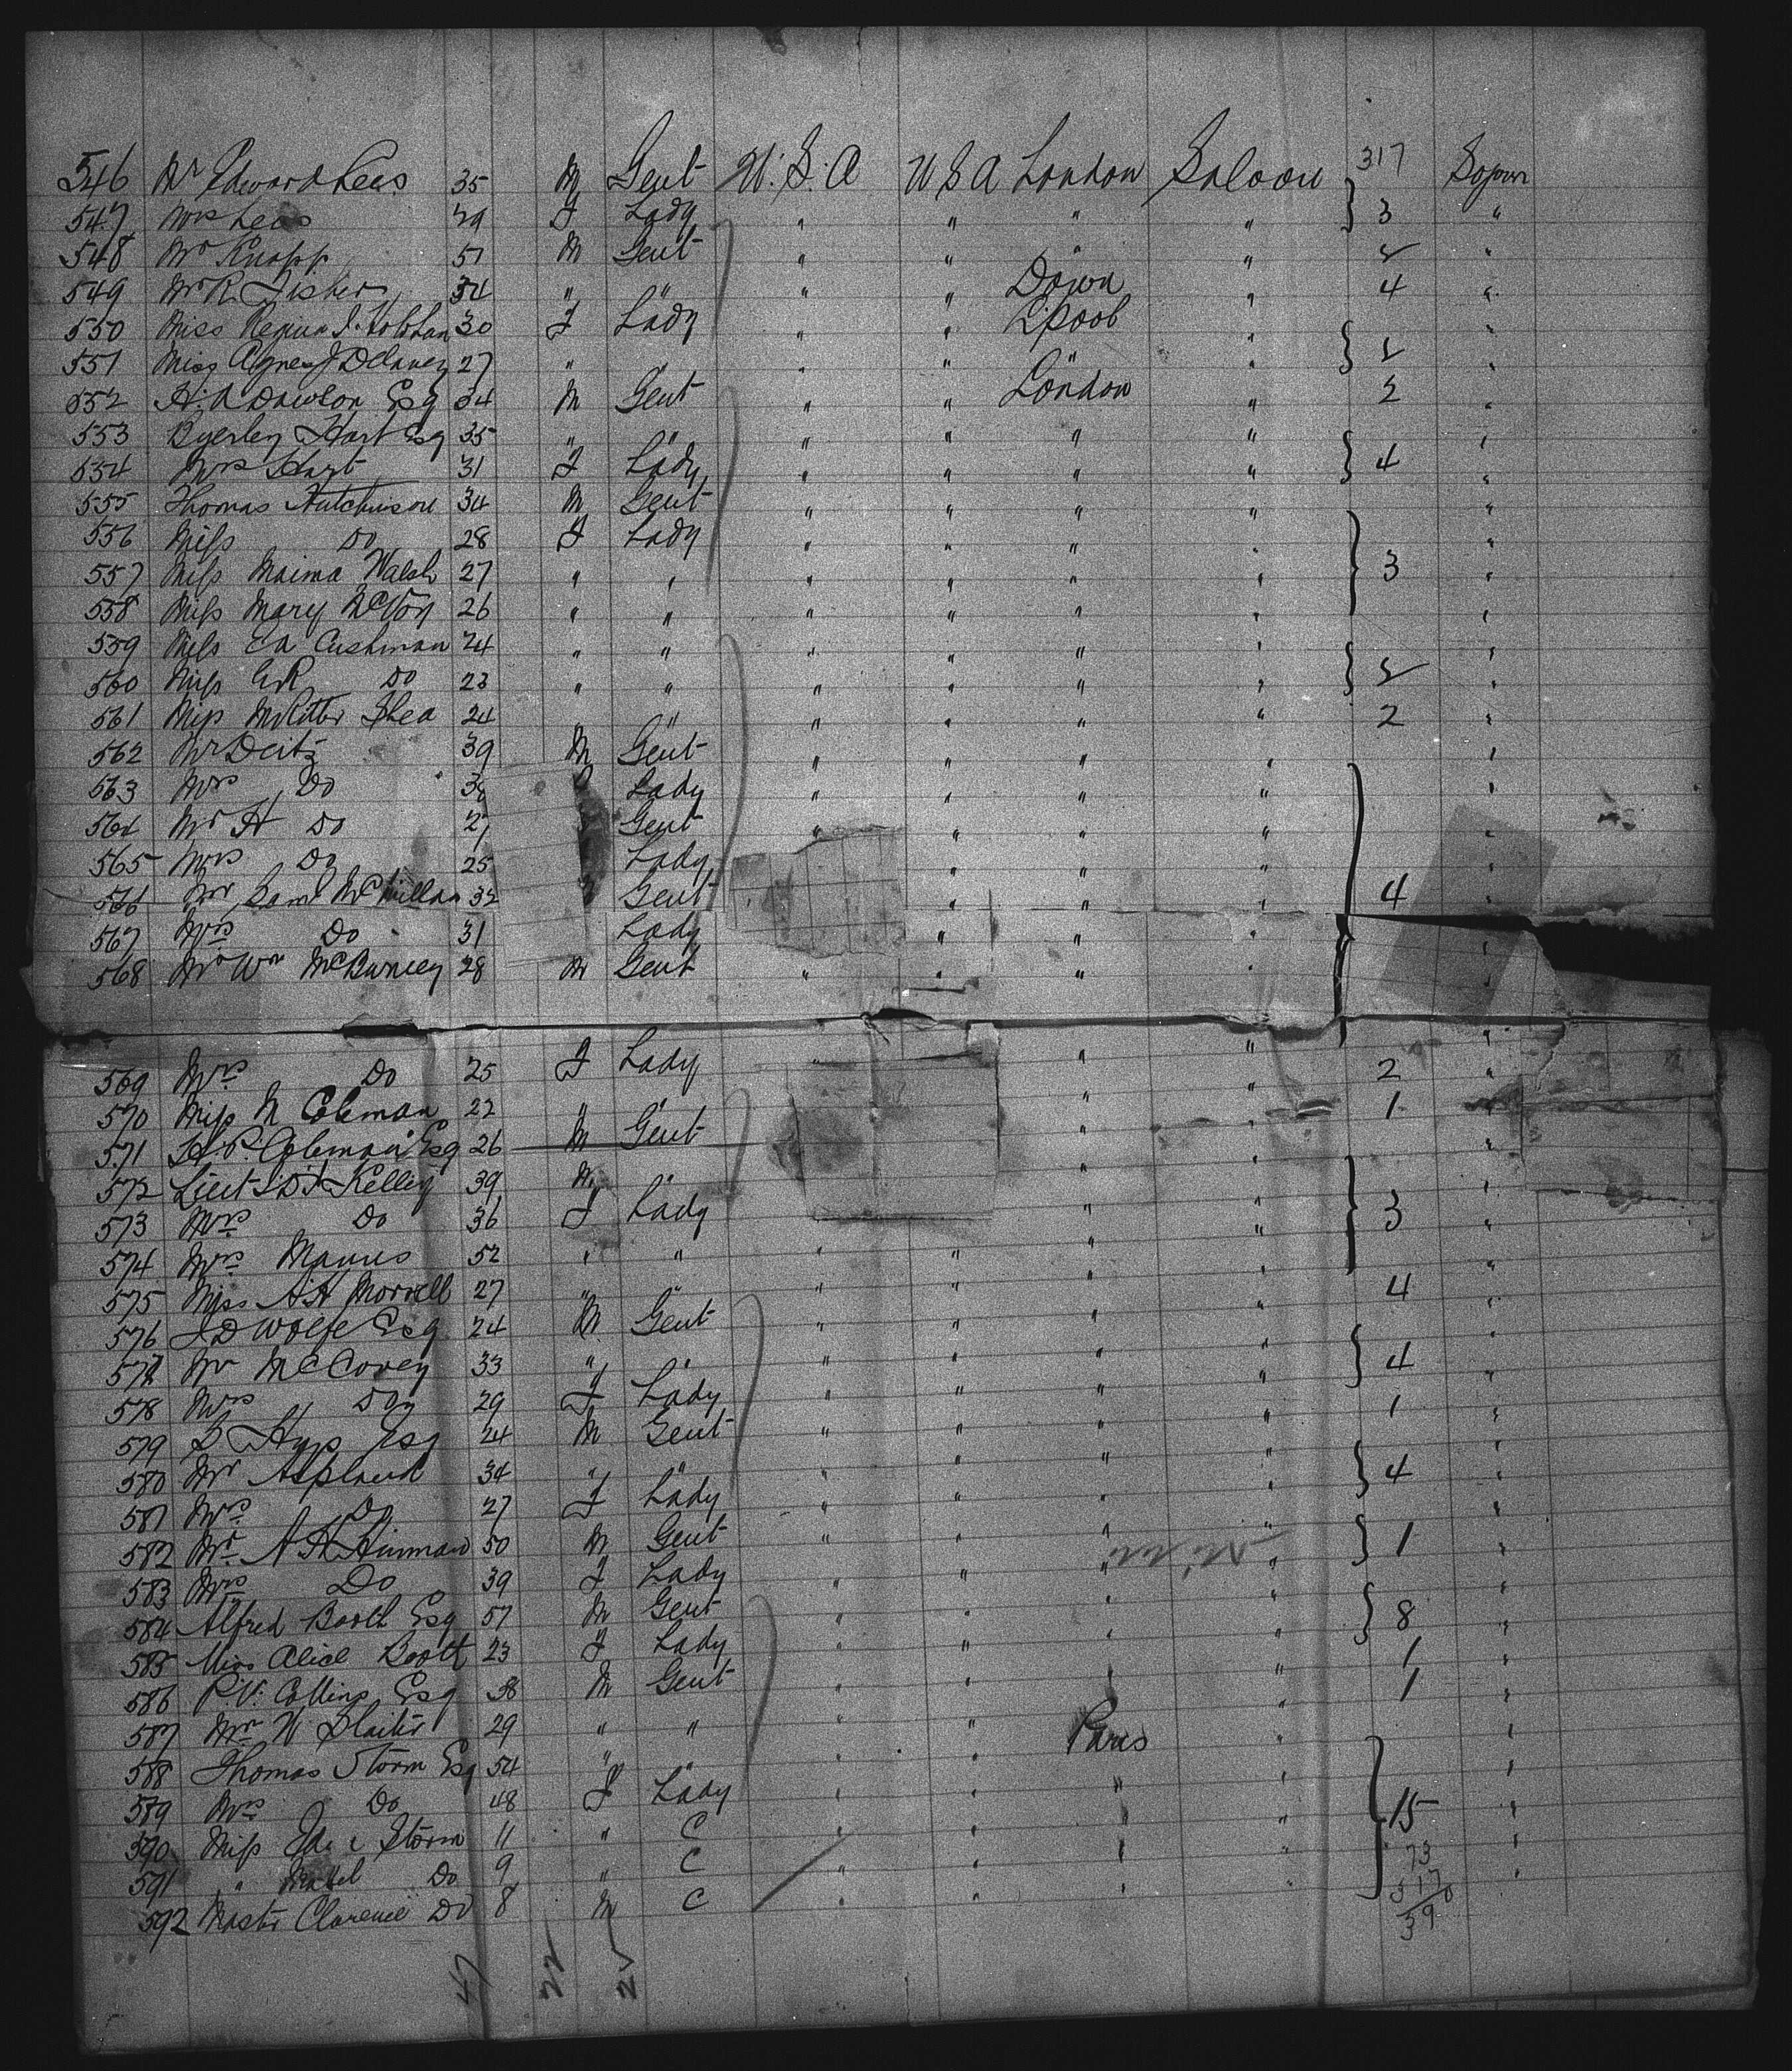 546 Mr Edward Lees 35 M Gent U.S.A U S A London Saloon 317 Sojourn
547 Mrs Lees 29 F Lady " " " " 3 "
548 Mr Knapp 51 M Gent " " " " 2 "
549 Mr R. Fisher 34 " " " " Down " 4 "
550 Miss 30 F Lady " " L'pool " "
551 Miss Agnes J Delaney 27 " " " " " " 2 "
552 H. A Dawson Esq 34 M Gent " " London " 2 "
553 Byerley Hart Esq 35 " " " " " " "
554 Mrs Hart 31 F Lady " " " " 4 "
555 Thomas Hutchinson 34 M Gent " " " " "
556 Miss Do 28 F Lady " " " " "
557 Miss Maima Walsh 27 " " " " " " 3 "
558 Miss Mary McVoy 26 " " " " " " "
559 Miss E A Cushman 24 " " " " " " "
560 Miss G R Do 23 " " " " " " 2 "
561 Miss Shea 24 " " " " " " 2 "
562 Mr Deitz 39 M Gent " " " " "
563 Mrs Do Lady " " " " "
564 Mr H Do Gent " " " " "
565 Mrs Do 25 Lady " " " "
566 Mr Saml McMillan 32 Gent " " " 4 "
567 Mrs Do 31 Lady " " " "
568 Mr Wm McBurney 28 M Gent " " " " "
569 Mrs Do 25 F Lady " " " 2 "
570 Miss M Coleman 22 " " " " 1 "
571 H. P. Coleman Esq 26 M Gent " " "
572 Lieut J D J Kelley 39 M " " " "
573 Mrs Do 36 F Lady " " 3 "
574 Mrs Manus 52 " " " " " " "
575 Miss A H Morrell 27 " " " " " " 4 "
576 J D Wolfe Esq. 24 M Gent " " " " "
577 Mr McCovey 33 " " " " " " 4 "
578 Mrs Do 29 F Lady " " " " 1 "
579 Esq 24 M Gent " " " " "
580 Mr Aspland 34 " " " " " " 4 "
581 Mrs Do 27 F Lady " " " " "
582 Mr A H Hinman 50 M Gent " " " " 1 "
583 Mrs Do 39 F Lady " " " " "
584 Alfred Booth Esq 57 M Gent " " " " 8 "
585 Miss Alice Booth 23 F Lady " " " " 1 "
586 P. V. Collins Esq 38 M Gent " " " " 1 "
587 Mr W Slaiter 29 " " " " Paris " "
588 Thomas Storm Esq 54 " " " " " " "
589 Mrs Do 48 F Lady " " " " 15 "
590 Miss Storm 11 " C " " " " "
591 " Mabel Do 9 " C " " " " 73 "
592 Master Clarence Do 8 M C " " " " 317
390
47 22 25